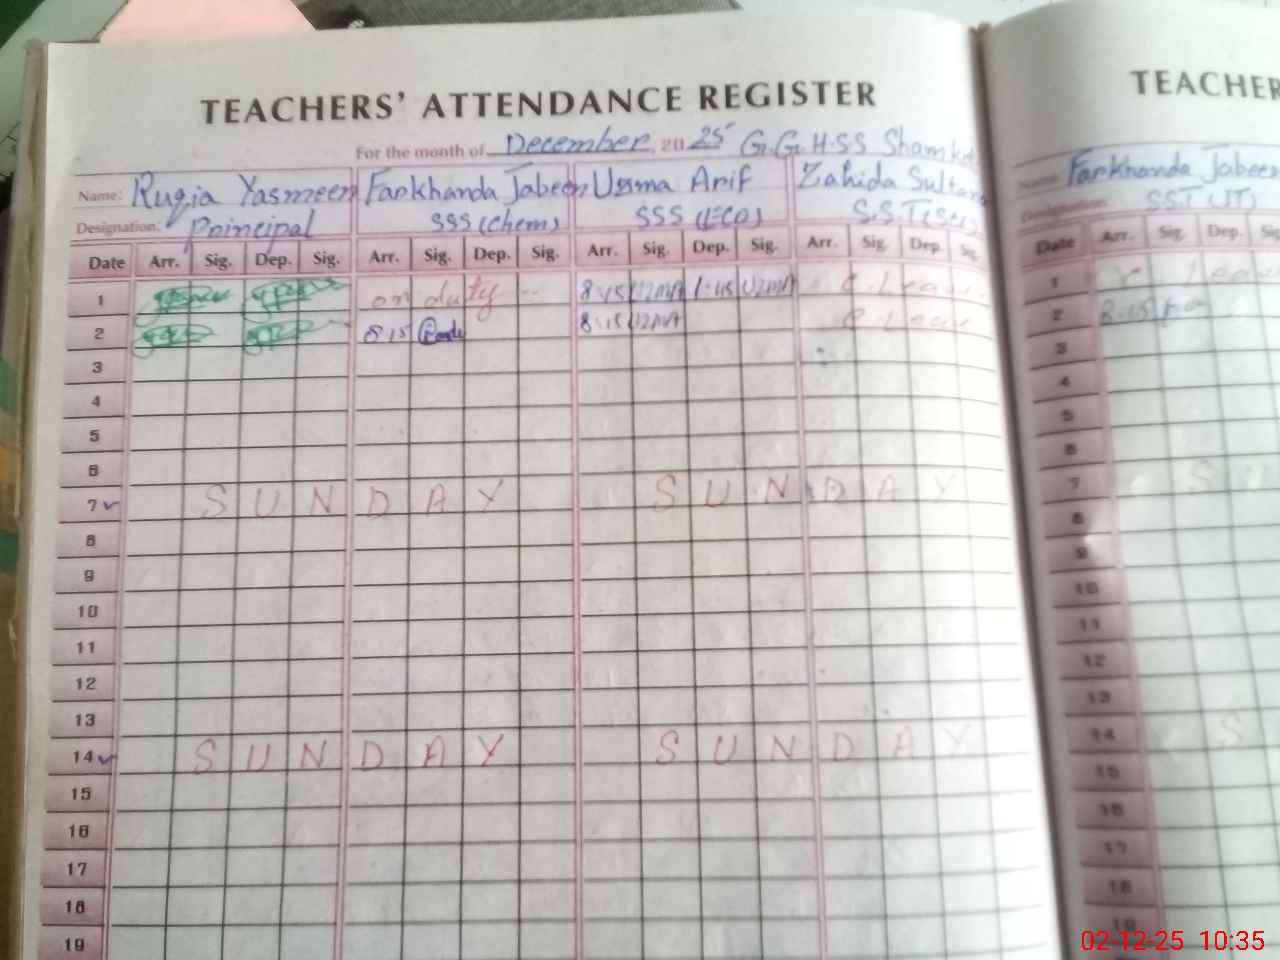 TEACHERS' ATTENDANCE REGISTER
For the month of December, 2025 G.G.H.S.S Shamkot
Name: Ruqia Yasmeen Farkhanda Jabeen Uzma Arif Zahida Sultana
Designation: Principal SSS (Chem) SSS (ECO) S.S.T(Sc)
Date Arr. Sig. Dep. Sig. Arr. Sig. Dep. Sig. Arr. Sig. Dep. Sig. Arr. Sig. Dep. Sig.
1 on duty 8:45 1:45 C. Leave
2 8:15 8:15 C. Leave
3
4
5
6
7 SUNDAY SUNDAY
8
9
10
11
12
13
14 SUNDAY SUNDAY
15
16
17
18
19
TEACHER
Name: Farkhanda Jabeen
Designation: SST (IT)
Date Arr. Sig. Dep. Sig
1 Leav
2 8:15
3
4
5
6
7 S U
8
9
10
11
12
13
14 S
15
16
17
18
19
02-12-25 10:35